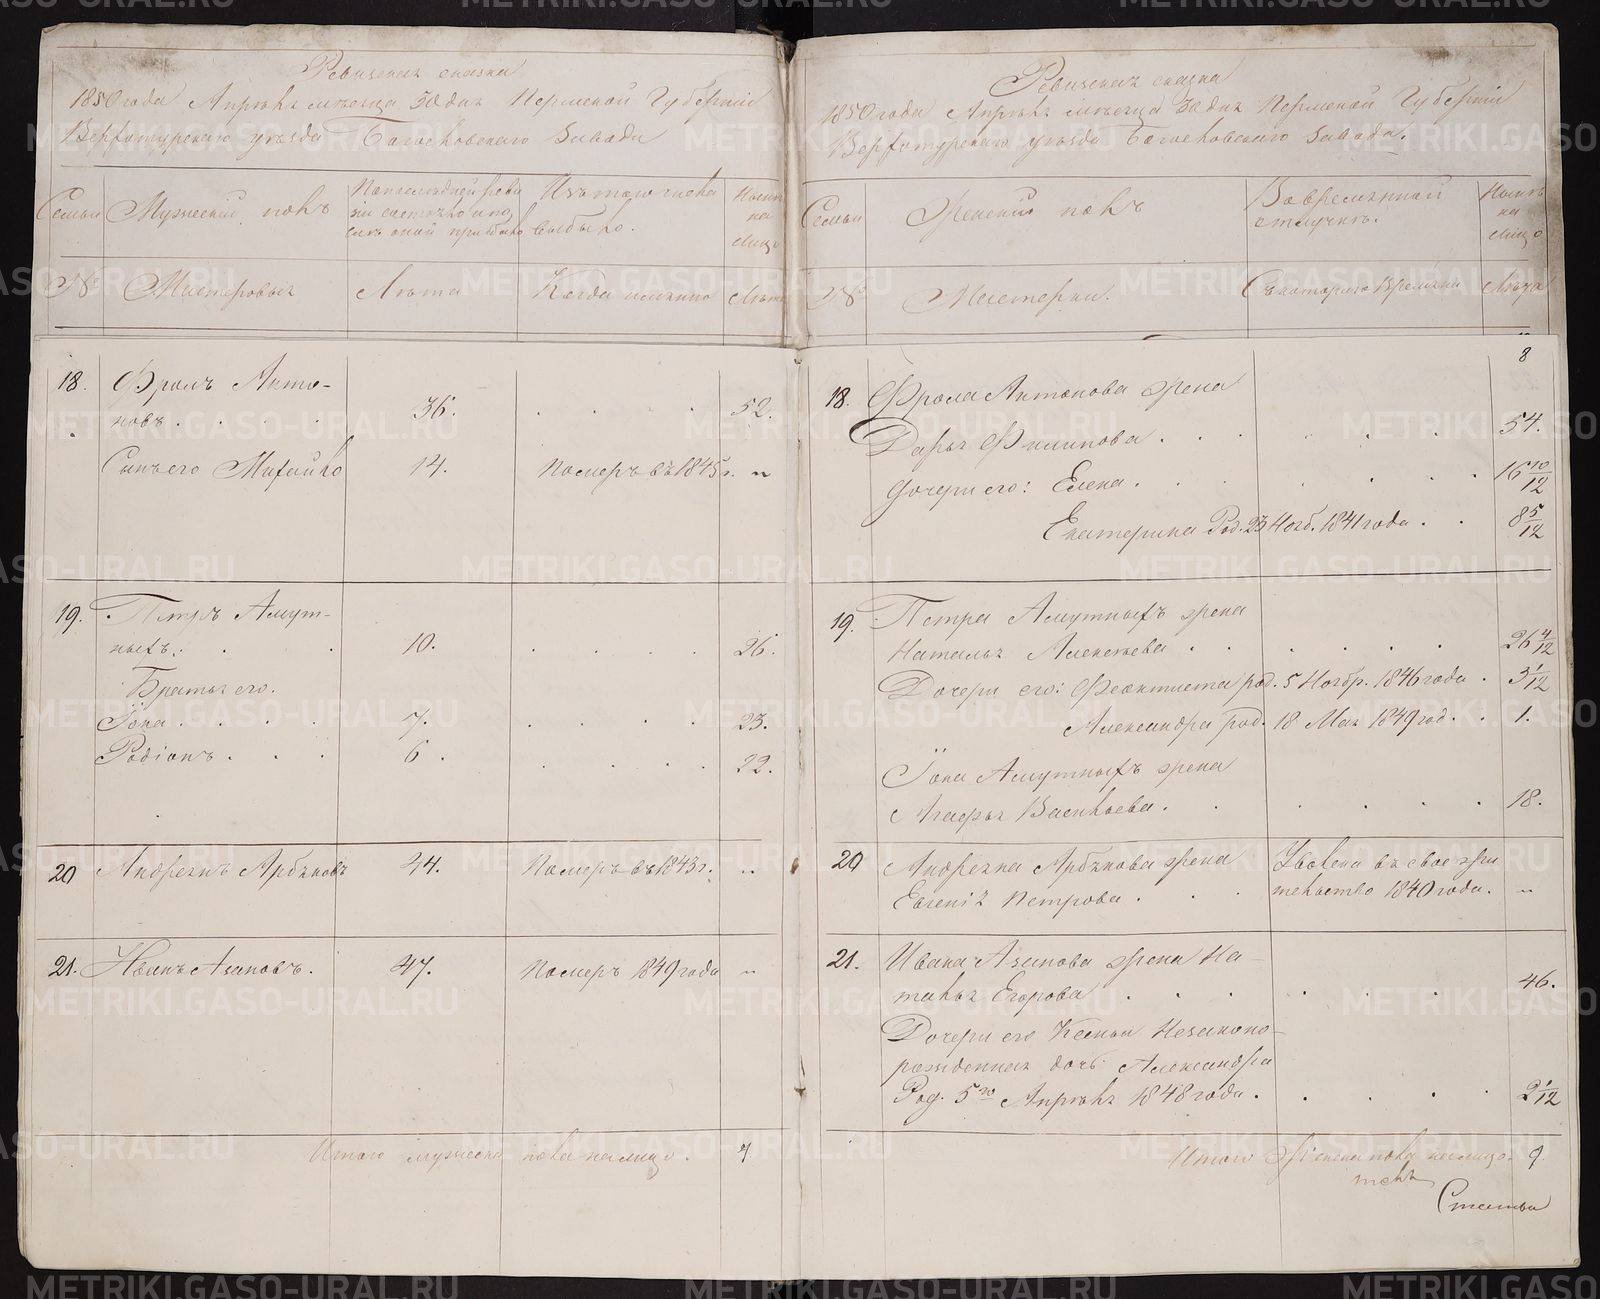 Ревизская сказка
1850 года Апрѣля мѣсяца 30 дня Пермской Губерніи
Верхотурскаго уѣзда Богословскаго Завода
Семьи
Мужескій полъ
По последней реви
зіи состояло или
послѣ оной прибыло
Изъ того числа
выбыло.
Ныне
на
лицо
№
Мастеровыя
Лѣта
Когда именно
Лѣта
18.
Фролъ Анто-
новъ . . . 36. . . . 52.
Сынъ его Михайло 14. Померъ въ 1845 г. "
19.
Петръ Амут-
ныхъ. . . 10. . . . 26.
Братья его.
Іона . . . 7. . . . 23.
Родіонъ . . . 6. . . . 22.
20 Андреянъ 44. Померъ въ 1843 г. "
21. Иванъ Азановъ. 47. Померъ 1849 года "
Итого мужеска пола налицо. 4
Ревизская сказка
1850 года Апрѣля мѣсяца 30 дня Пермской Губерніи
Верхотурскаго уѣзда Богословскаго Завода.
Семьи
Женскій полъ
Во временной
отлучкѣ.
Ныне
на
лицо
№
Мастерки.
Съ котораго времени
Лѣта
8
18. Фрола Антонова жена
Дарья Филипова . . . 54.
Дочери его: Елена . . . 16 10/12
Екатерина Род. 23 Нояб. 1841 года . . 8 5/12
19. Петра Амутныхъ жена
Наталья Алексѣева . . . 26 4/12
Дочери его: Феоктиста род. 5 Ноябр. 1846 года . 3 1/12
Александра род. 18 Мая 1849 год. . . 1.
Іона Амутныхъ жена
Агафья Васильева . . . 18.
20 Андреяна жена
Евгенія Петрова . . .
Уволена въ свое жи
тельство 1840 года. "
21. Ивана Азанова жена На-
талья Егорова . . . 46.
Дочери его Ксеньи Незаконо-
рожденная дочь Александра
Род. 5го Апрѣля 1848 года . . . 2 1/12
Итого женска пола налицо. 9
Статьи
METRIKI.GASO-URAL.RU